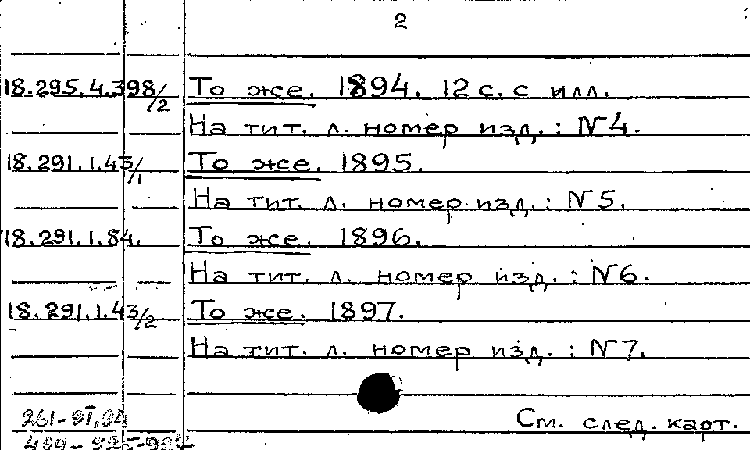 2
18.295.4.398/2 То же. 1894. 12 с. с илл.
На тит. л. номер изд.: №4.
18.291.1.43/1 То же. 1895.
На тит. л. номер изд.: №5.
18.291.1.84. То же. 1896.
На тит. л. номер изд.: №6.
18.291.1.43/2 То же. 1897.
На тит. л. номер изд.: №7.
См. след. карт.